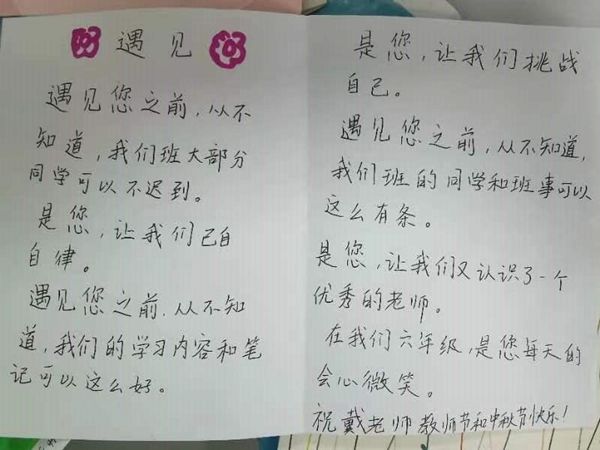 遇见
遇见您之前,从不
知道,我们班大部分
同学可以不迟到。
是您,让我们已自
自律。
遇见您之前.从不知
道,我们的学习内容和笔
记可以这么好。
是您,让我们挑战
自己。
遇见您之前,从不知道,
我们班的同学和班事可以
这么有条。
是您,让我们又认识了一个
优秀的老师。
在我们六年级,是您每天的
会心微笑。
祝戴老师教师节和中秋节快乐!